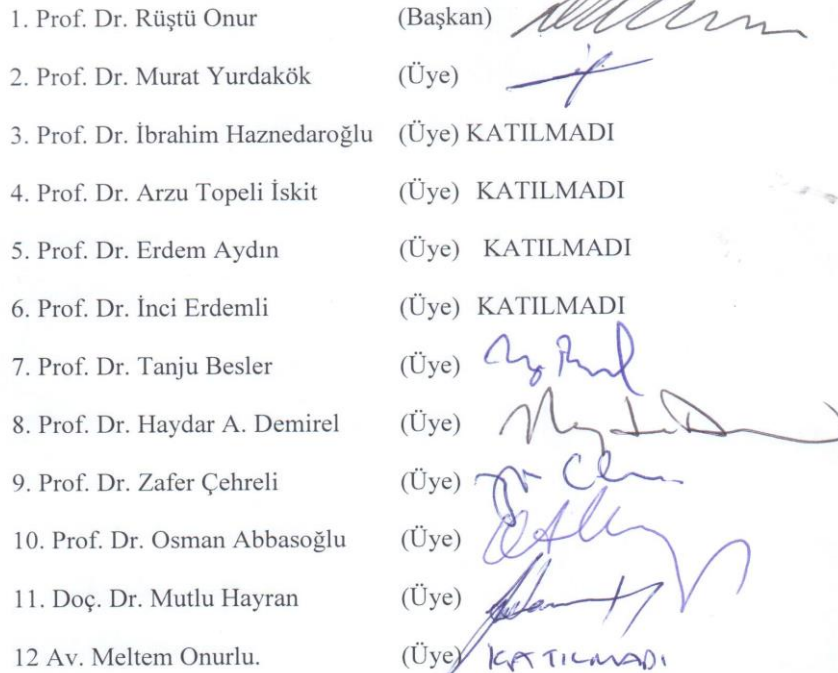 1. Prof. Dr. Rüştü Onur (Başkan)
2. Prof. Dr. Murat Yurdakök (Üye)
3. Prof. Dr. İbrahim Haznedaroğlu (Üye) KATILMADI
4. Prof. Dr. Arzu Topeli İskit (Üye) KATILMADI
5. Prof. Dr. Erdem Aydın (Üye) KATILMADI
6. Prof. Dr. İnci Erdemli (Üye) KATILMADI
7. Prof. Dr. Tanju Besler (Üye)
8. Prof. Dr. Haydar A. Demirel (Üye)
9. Prof. Dr. Zafer Çehreli (Üye)
10. Prof. Dr. Osman Abbasoğlu (Üye)
11. Doç. Dr. Mutlu Hayran (Üye)
12 Av. Meltem Onurlu. (Üye) KATILMADI